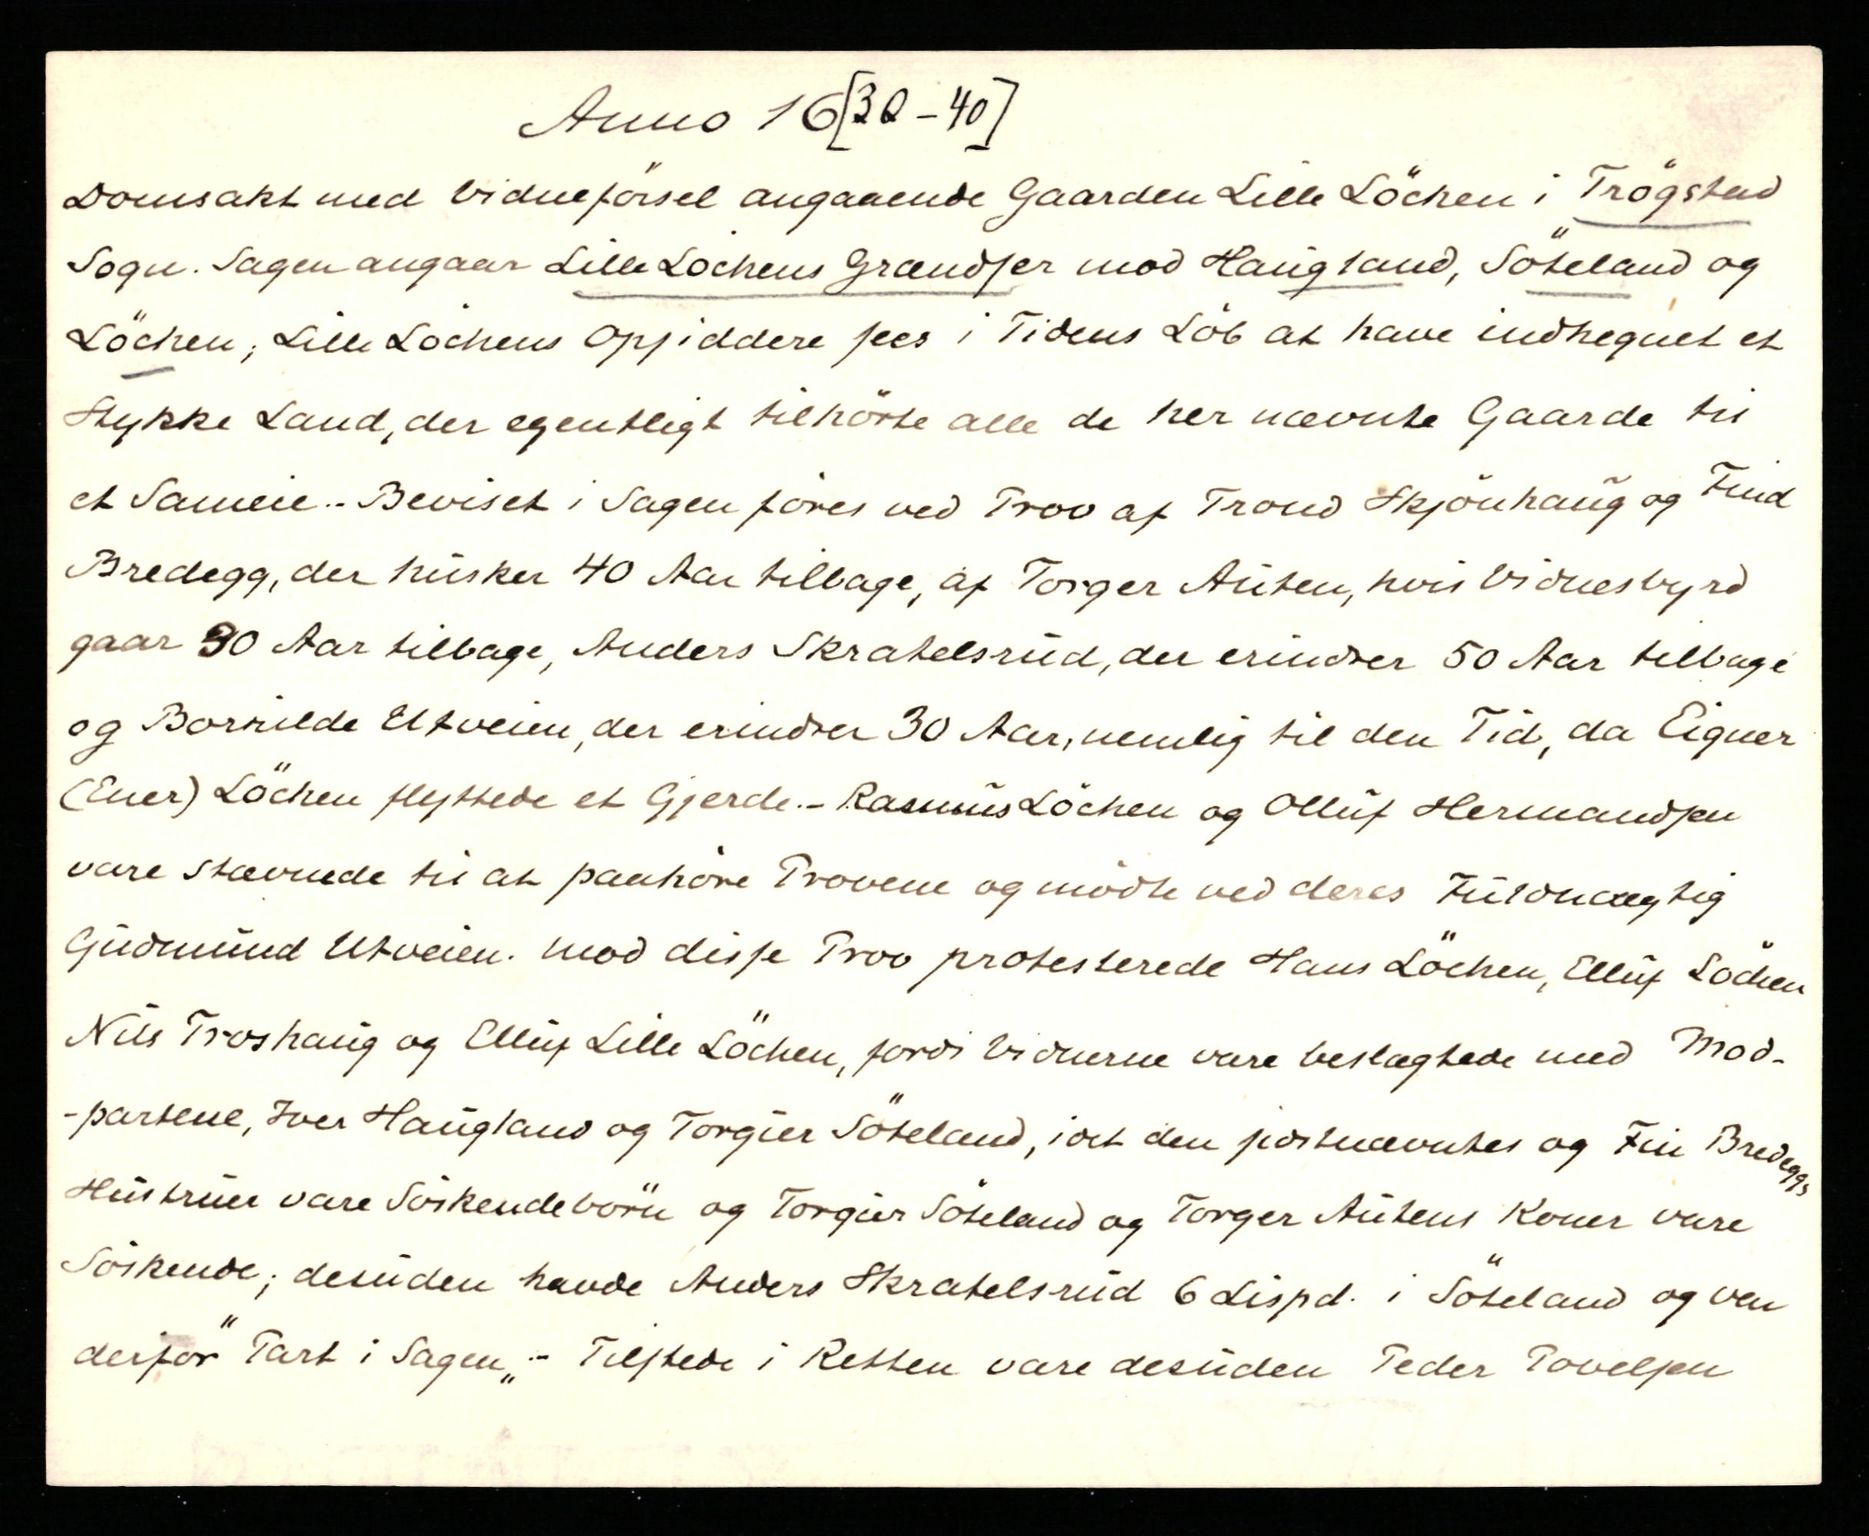 Anno 16[30-40]
Domsakt med Vidneførsel angaaende Gaarden Lille Löchen i Trögstad
Sogn. Sagen angaar Lille Löchens Grændser mod Haugland, Söteland og
Löchen; Lille Löchens Opsiddere sees i Tidens Löb at have indhegnet et
Stykke Land, der egentligt tilhörte alle de her nævnte Gaarde til
et Sameie.- Beviset i Sagen föres ved Prov af Trond Skjönhaug og Find
Bredegg, der husker 40 Aar tilbage, af Torger Auten, hvis Vidnesbyrd
gaar 30 Aar tilbage, Anders Skratelsrud, der erindrer 50 Aar tilbage
og Borhilde Utveien, der erindrer 30 Aar, nemlig til den Tid, da Eigner
(Ener) Löchen flyttede et Gjerde.- Rasmus Löchen og Olluf Hermandsen
vare stævnede til at paahöre Provene og mödte ved deres Fuldmægtig
Gudmund Utveien. Mod disse Prov protesterede Hans Löchen, Elluf Löchen
Nils Troshaug og Elluf Lille Löchen, fordi Vidnerne vare beslægtede med Mod-
-partene, Iver Haugland og Torgier Söteland, idet den sidstnævntes og Fin Bredeggs
Hustruer vare Söskendebörn og Torgier Söteland og Torger Autens Koner vare
Söskende; desuden havde Anders Skratelsrud 6 Lispd. i Söteland og var
derfor "Part i Sagen„.- Tilstede i Retten vare desuden Peder Povelsen